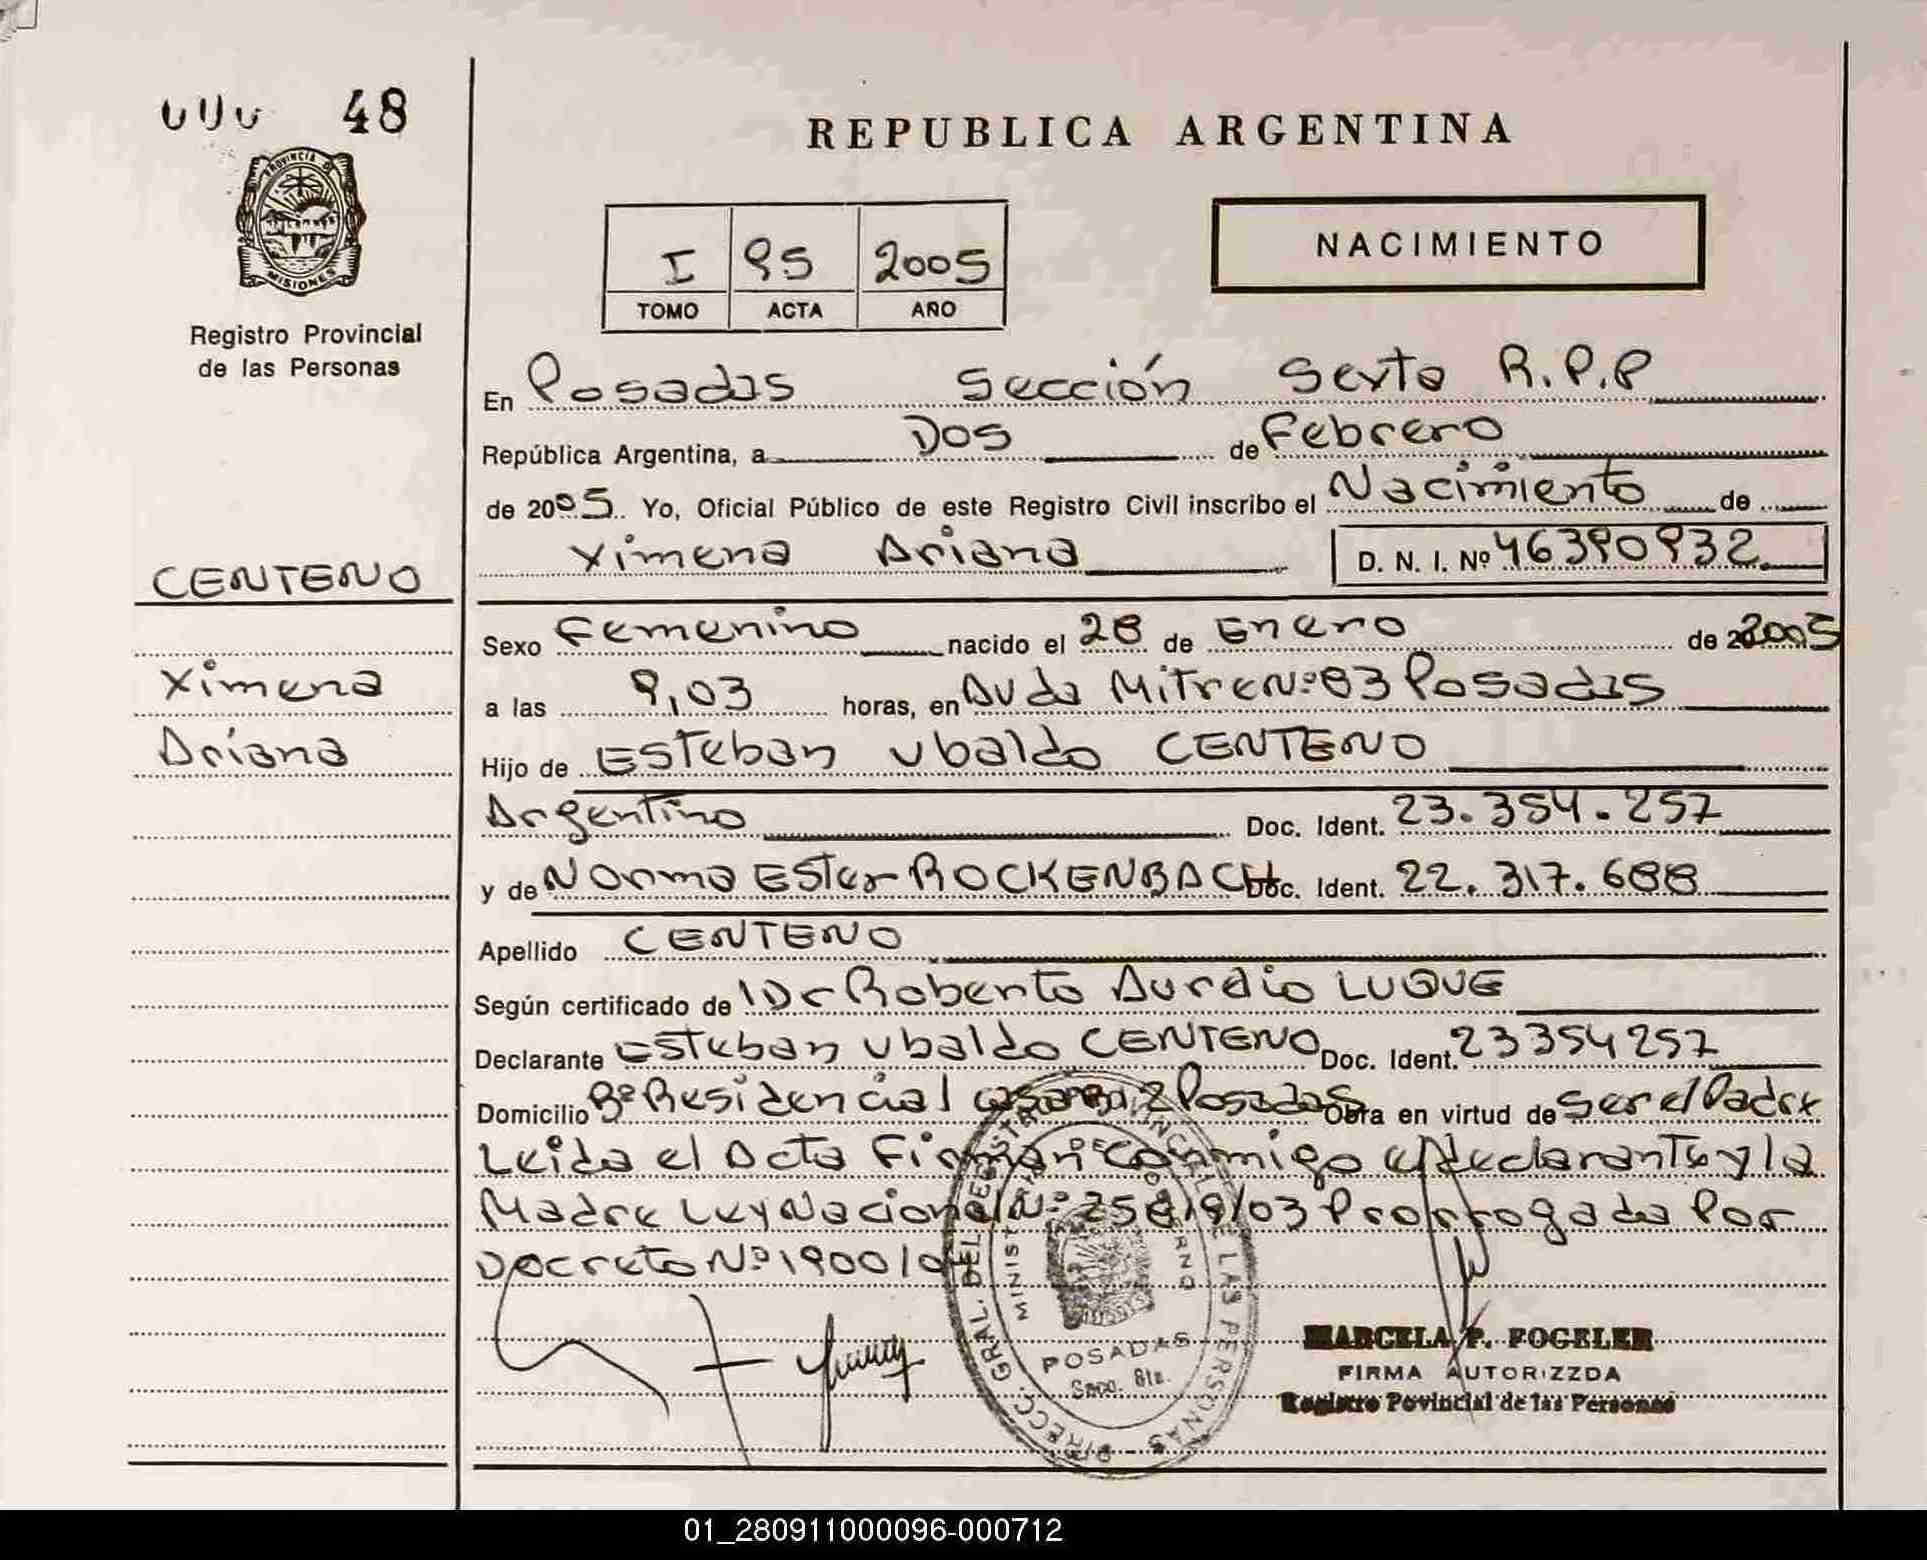 48
PROVINCIA DE
MISIONES
Registro Provincial
de las Personas
CENTENO
Ximena
Ariana
REPUBLICA ARGENTINA
I 95 2005
TOMO ACTA AÑO
NACIMIENTO
En Posadas Sección Sexta R.P.P
República Argentina, a Dos de Febrero
de 2005 Yo, Oficial Público de este Registro Civil inscribo el Nacimiento de
Ximena Ariana D. N. I. Nº 46390932
Sexo Femenino nacido el 28 de Enero de 2005
a las 9,03 horas, en Avda Mitre Nº 83 Posadas
Hijo de Esteban Ubaldo CENTENO
Argentino Doc. Ident. 23.354.257
y de Norma Ester ROCKENBACH Doc. Ident. 22.317.688
Apellido CENTENO
Según certificado de Dr Roberto Aurelio LUQUE
Declarante Esteban Ubaldo CENTENO Doc. Ident. 23354257
Domicilio Bº Residencial casa Posadas Obra en virtud de Ser el Padre
Leida el Acta Firman conmigo el declarante y la
Madre Ley Nacional Nº 25819/03 Prorrogada Por
Decreto Nº 1900/0
DIRECC. GRAL. DEL REGISTRO PROVINCIAL DE LAS PERSONAS
MINISTERIO DE GOBIERNO
POSADAS
Secc. 6ta.
MARCELA P. FOGELER
FIRMA AUTORIZZDA
Registro Povincial de las Personas
01_280911000096-000712